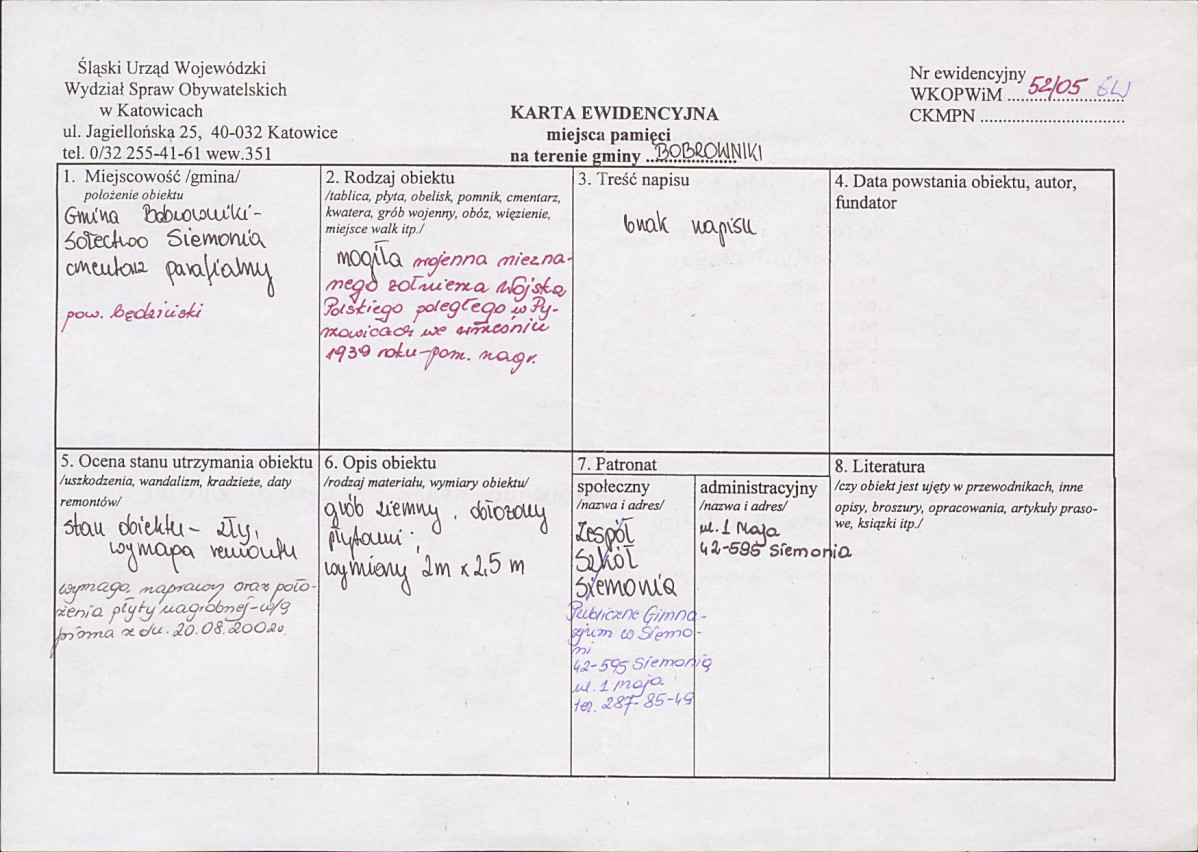 Śląski Urząd Wojewódzki
Wydział Spraw Obywatelskich
w Katowicach
ul. Jagiellońska 25, 40-032 Katowice
tel. 0/32 255-41-61 wew.351
KARTA EWIDENCYJNA
miejsca pamięci
na terenie gminy ..BOBROWNIKI
Nr ewidencyjny
WKOPWiM ....52/05....
CKMPN ................................
1. Miejscowość /gmina/
położenie obiektu
Gmina Bobrowniki-
Sołectwo Siemonia
cmentarz parafialny
pow. będziński
2. Rodzaj obiektu
/tablica, płyta, obelisk, pomnik, cmentarz,
kwatera, grób wojenny, obóz, więzienie,
miejsce walk itp./
mogiła wojenna niezna-
nego żołnierza Wojska
Polskiego poległego w Py-
rzowicach we wrześniu
1939 roku-pom. nagr.
3. Treść napisu
brak napisu
4. Data powstania obiektu, autor,
fundator
5. Ocena stanu utrzymania obiektu
/uszkodzenia, wandalizm, kradzieże, daty
remontów/
stan obiektu - zły,
wymaga remontu
wymaga naprawy oraz poło-
żenia płyty nagrobnej-w/g
pisma z dn. 20.08.2002r.
6. Opis obiektu
/rodzaj materiału, wymiary obiektu/
grób ziemny, obłożony
płytami.
wymiary 2m x 2,5 m
7. Patronat
społeczny
/nazwa i adres/
Zespół
Szkół
Siemonia
Publiczne Gimna-
zjum w Siemo-
ni
42-595 Siemonia
ul. 1 Maja
tel. 287-85-49
administracyjny
/nazwa i adres/
ul. 1 Maja
42-595 Siemonia
8. Literatura
/czy obiekt jest ujęty w przewodnikach, inne
opisy, broszury, opracowania, artykuły praso-
we, książki itp./